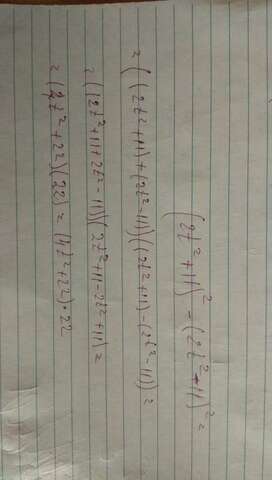 (2t²+11)² - (2t²-11)² =
= ((2t²+11)+(2t²-11))((2t²+11)-(2t²-11)) =
= ((2t²+11+2t²-11))(2t²+11-2t²+11) =
= (2t²+2²)(22) = (4t²+22)·22